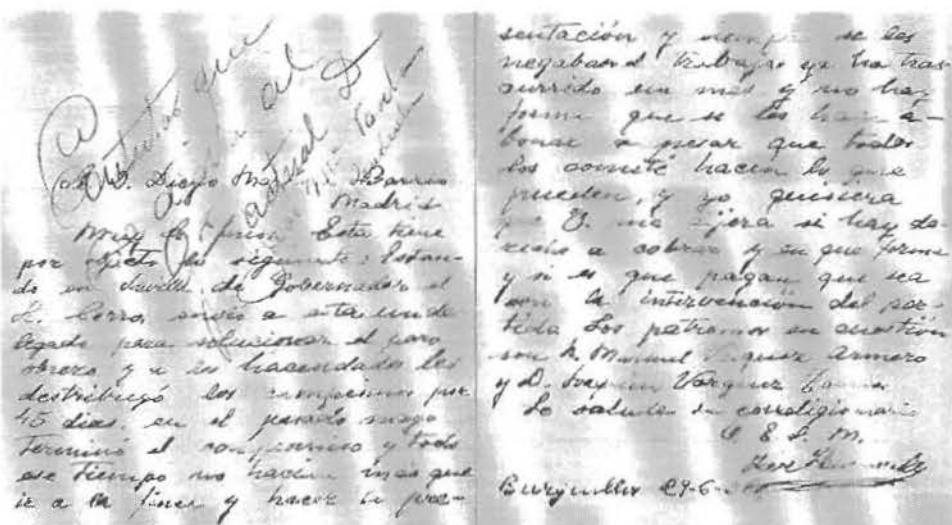 Contesta que
actual D
D. Diego Barrio
Madrid
Muy Sr. Esta tiene
por objeto lo siguiente: Estan-
do en Sevilla de Gobernador el
Sr. Corro, envió a esta un de
legado para solucionar el paro
obrero y a los hacendados les
destribuyó los campesinos por
45 dias. en el pasado mayo
terminó el compromiso y todo
ese tiempo no hacian mas que
ir a la finca y hacer la pre-
sentación y siempre se les
negaban el trabajo ya ha tras-
currido un mes y no hay
forma que se les haia a-
bonar a pesar que todos
los comité hacen lo que
pueden, y yo quisiera
U. me dijera si hay de-
recho a cobrar y en que forma
y si es que pagan que sea
con la intervencion del par-
tido Los patronos en cuestion
son D. Manuel Vazquez Armero
y D. Joaquin Vazquez
Le saluda su correligionario
Q. E. S. M.
Burguillos 29-6-